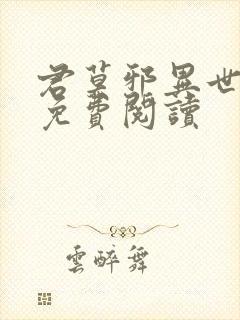 君莫邪異世
免費閱讀
雲醉舞